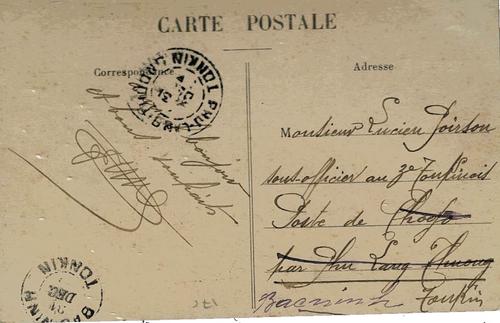 CARTE POSTALE
Correspondance
Adresse
et bons
bonjour
Monsieur Lucien Poirson
sous-officier au 3e Tonkinois
Poste de
par Phu Lang Thuong
Bacninh Tonkin
PHU-LANG-THUONG
TONKIN
31
BAC-NINH
TONKIN
31
DEC